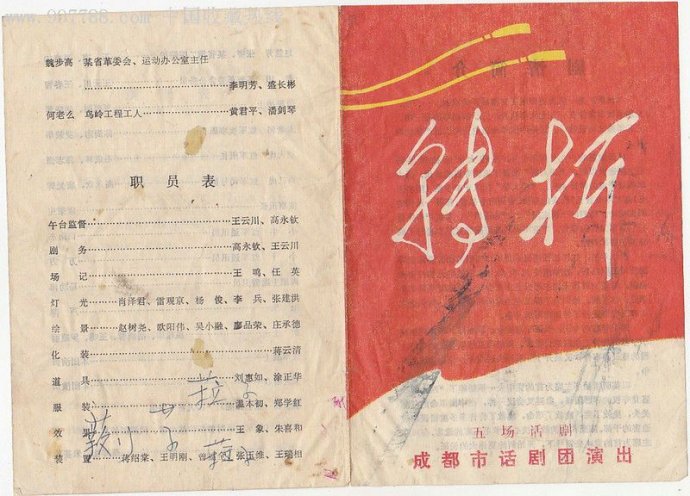 www.997788.com 中国收藏热线
魏步高 某省革委会、运动办公室主任
李明芳、盛长彬
何老么 鸟岭工程工人 黄君平、潘剑琴
职员表
午台监督 王云川、高永钦
剧务 高永钦、王云川
场记 王鸣、任英
灯光 肖泽君、雷观京、杨俊、李兵、张建洪
绘景 赵树尧、欧阳伟、吴小融、廖品荣、庄承德
化装 蒋云清
道具 刘惠如、涂正华
服装 本初、郑学红
效果 王象、朱喜和
装置 蒋绍棠、王明刚、张玉维、王瑞相
转折
五场话剧
成都市话剧团演出